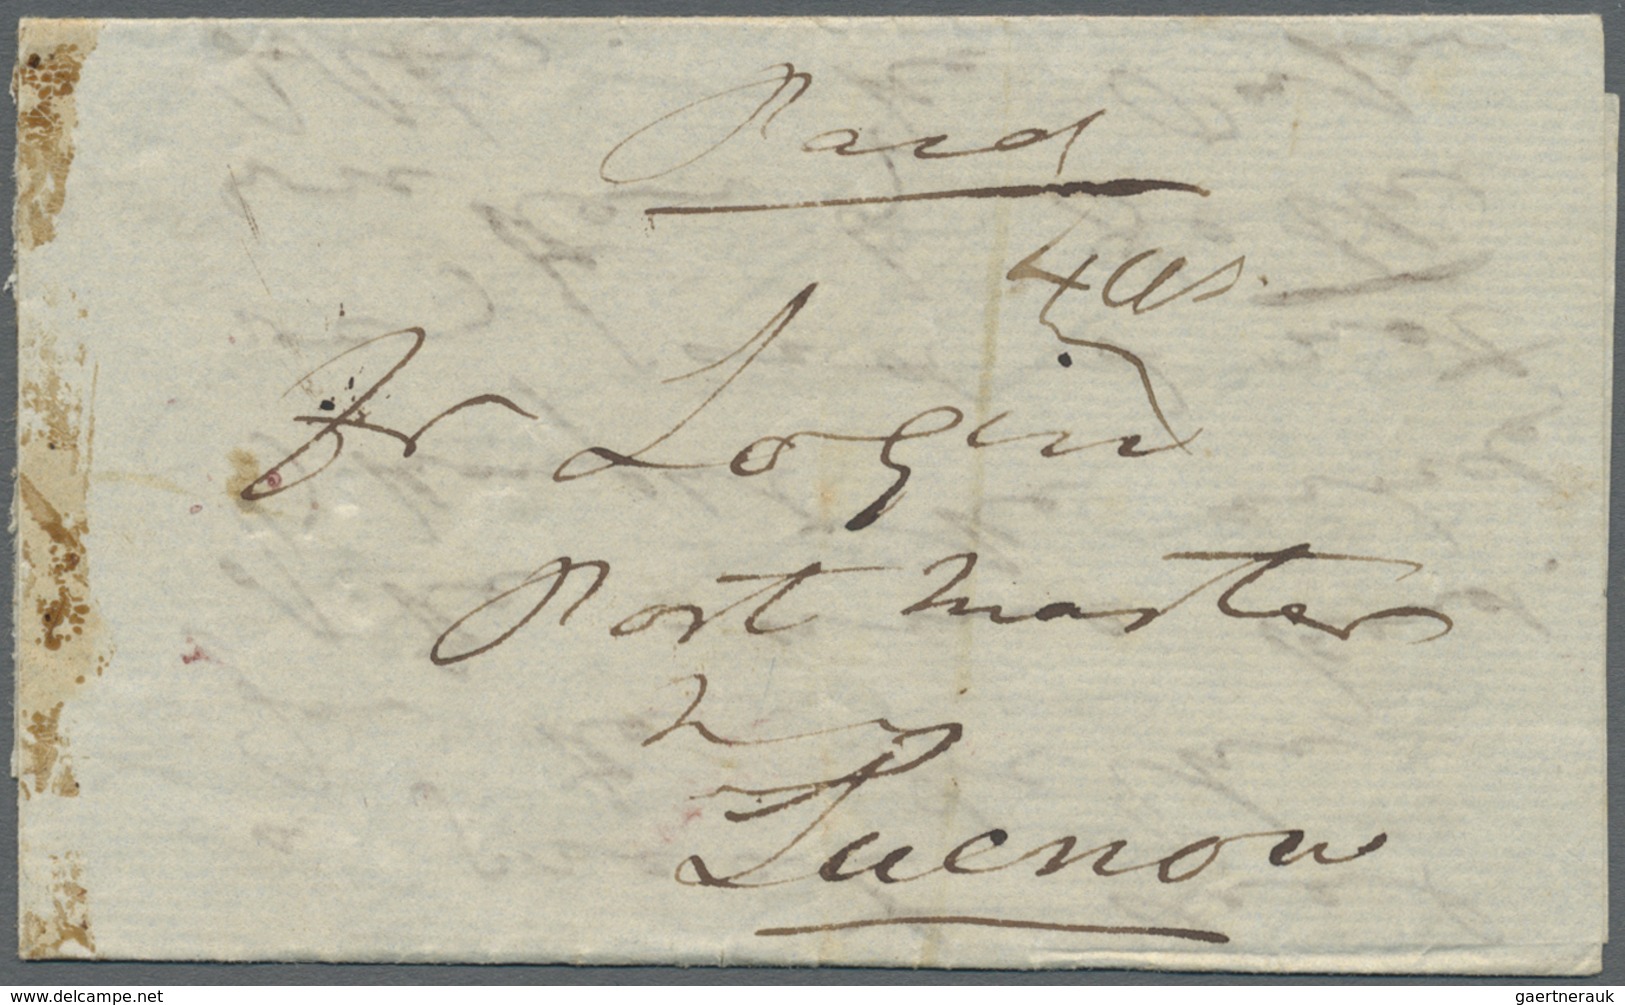 Paid
4 as.
Dr Login
Post Master
Lucnow
www.delcampe.net
gaertnerauk